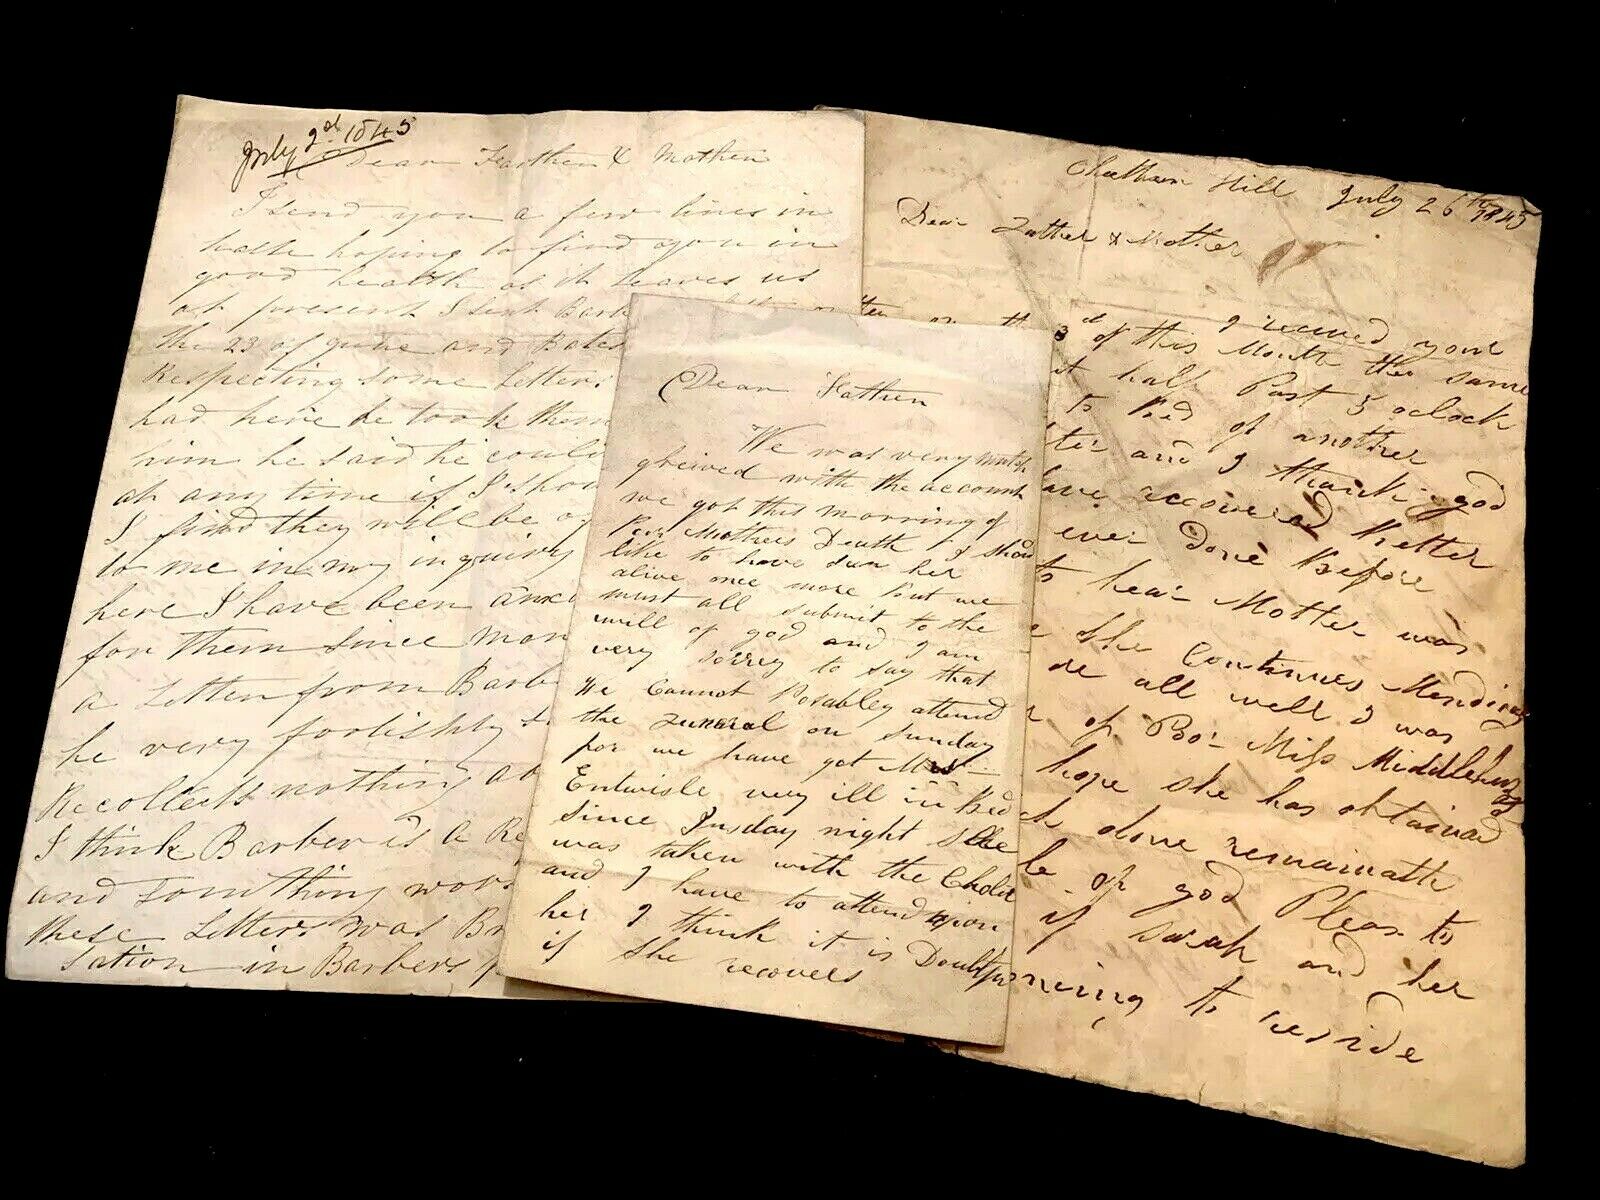 July 2nd 1845
Dear Farther & Mother
I send you a few lines in
haste hoping to find you in
good health as it leaves us
at present I sent Barb
the 23 of June and Bates
Respecting some letters
had here he took them
him he said he could
at any time if I shou
I find they will be of
to me in my inquiry
here I have been anxi
for them since mon
a Letter from Barb
he very foolishly
Recollects nothing abo
I think Barber is a Re
and somthing wors
these Letters was
sation in Barbers p
Dear Father
We was very mutch
greived with the account
we got this morning of
Poor Mothers Death I shou
like to have seen her
alive once more but we
must all submit to the
will of god and I am
very sorrey to say that
We Cannot Posabley attend
the funeral on Sunday
for we have got Mrs
Entwisle very ill in Bed
since Tusday night She
was taken with the Choler
and I have to attend upon
her I think it is Doubtful
if She recovers
Cheetham Hill July 26th 1845
Dear Father & Mother
I received your
on the 3d of this Month the same
at half Past 5 oclock
to Bed of another
and I thank god
have recovered Better
ever Done Before
to hear Mother was
She Continues Mending
all well I was
of Poor Miss Middlehurst
hope she has obtained
alone remaineth
of god Pleas to
if Sarah and her
to reside